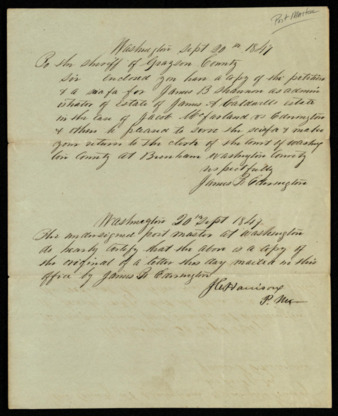 Post Master
Washington Sept 20th 1847
To the sheriff of Grayson County
Sir Enclosed you have a copy of the petition
& a scifa for James B Shannon as admin
istrator of Estate of James A Caldwells estate
in the case of Jacob McFarland vs Edrington
& others to pleased to serve the scifa & make
your return to the clerk of the court of washing
ton County at Brenham Washington County
respectfully
James F Edrington
Washington 20th Sept 1847
The undersigned post master at Washington
do hearby certify that the above is a copy of
the original of a letter this day mailed in this
office by James F Edrington
Harrison
P. M